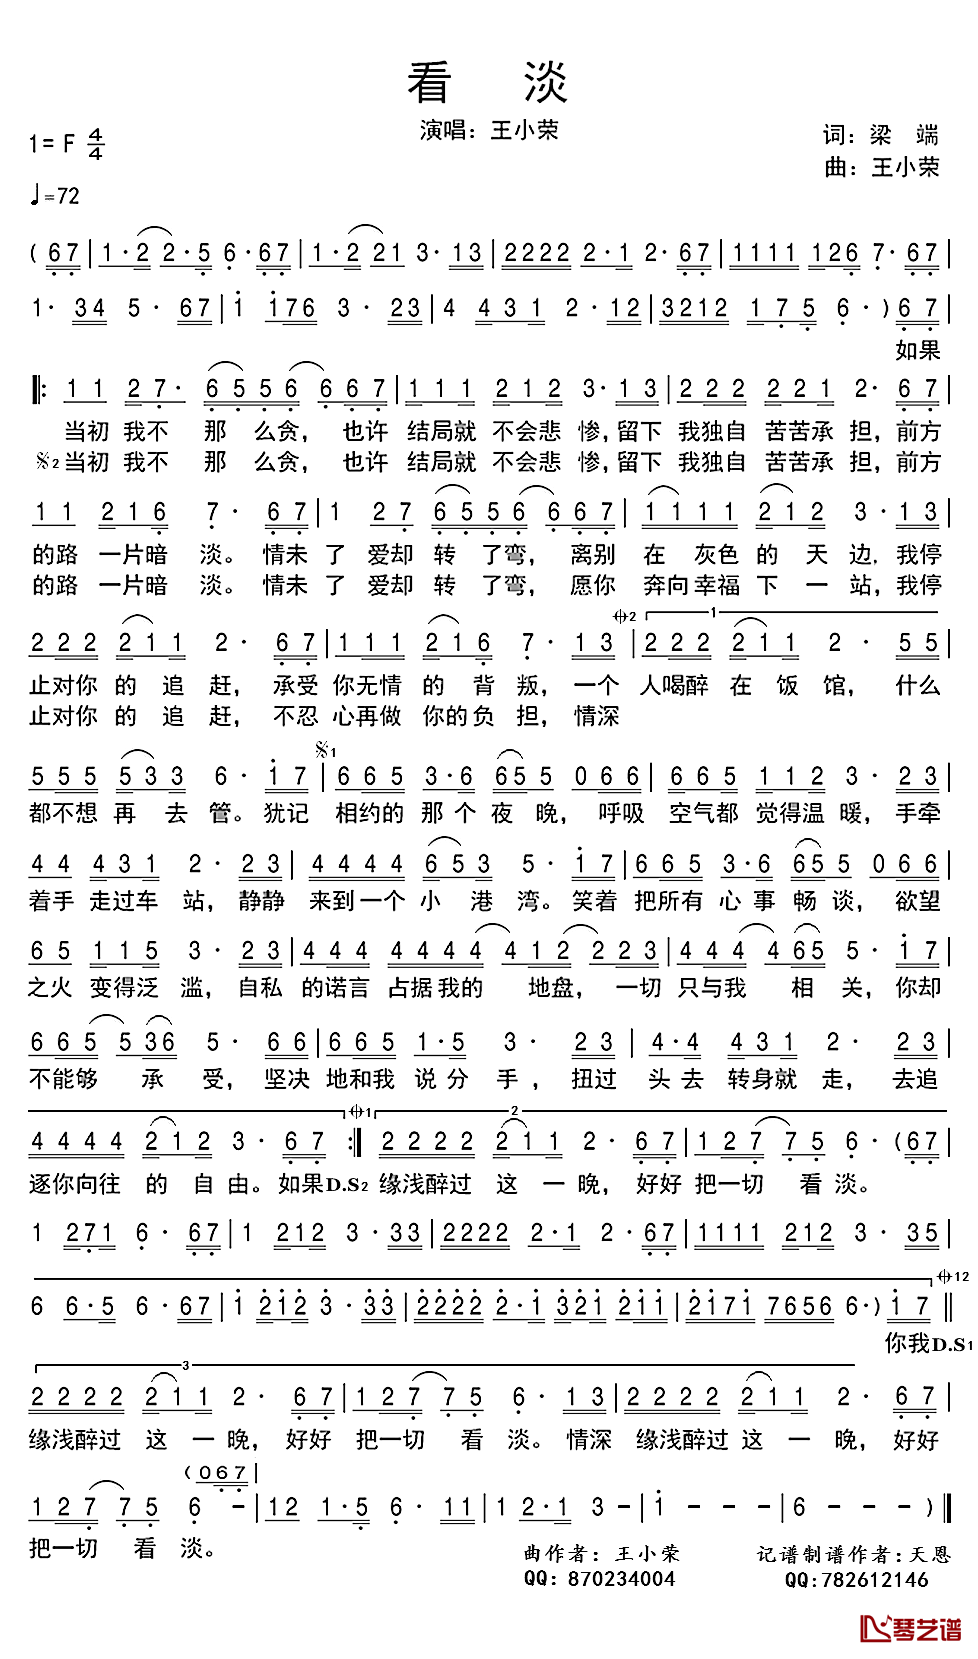 看 淡
演唱：王小荣
1= F 4/4
词：梁 端
曲：王小荣
♩=72
( 6 7 | 1·2 2·5 6·6 7 | 1·2 2 2 1 3·1 3 | 2 2 2 2 2·1 2·6 7 | 1 1 1 1 1 2 6 7·6 7 |
1·3 4 5·6 7 | 1 1 7 6 3·2 3 | 4 4 3 1 2·1 2 | 3 2 1 2 1 7 5 6·) 6 7
如果
1 1 2 7· 6 5 5 6 6 6 7 | 1 1 1 2 1 2 3·1 3 | 2 2 2 2 2 1 2· 6 7 |
当初 我不 那 么贪， 也许 结局就 不会悲 惨，留下 我独自 苦苦承 担，前方
𝄋2 当初 我不 那 么贪， 也许 结局就 不会悲 惨，留下 我独自 苦苦承 担，前方
1 1 2 1 6 7· 6 7 | 1 2 7 6 5 5 6 6 6 7 | 1 1 1 1 2 1 2 3·1 3
的路 一片暗 淡。 情未 了 爱却 转 了弯， 离别 在 灰色 的 天 边，我停
的路 一片暗 淡。 情未 了 爱却 转 了弯， 愿你 奔向 幸福 下 一 站，我停
2 2 2 2 1 1 2· 6 7 | 1 1 1 2 1 6 7· 1 3 | 2 2 2 2 1 1 2· 5 5 |
止对你 的 追 赶， 承受 你无情 的 背 叛，一个 人喝醉 在 饭 馆，什么
止对你 的 追 赶， 不忍 心再做 你的负 担，情深
5 5 5 5 3 3 6· 1 7 | 6 6 5 3·6 6 5 5 0 6 6 | 6 6 5 1 1 2 3· 2 3
都不想 再 去 管。犹记 相约的 那 个 夜 晚， 呼吸 空气都 觉得温 暖，手牵
4 4 4 3 1 2· 2 3 | 4 4 4 4 6 5 3 5· 1 7 | 6 6 5 3·6 6 5 5 0 6 6
着手 走过车 站，静静 来到一个 小 港 湾。笑着 把所有 心 事 畅 谈，欲望
6 5 1 1 5 3· 2 3 | 4 4 4 4 4 4 4 4 1 2 2 2 3 | 4 4 4 4 6 5 5· 1 7
之火 变得泛 滥，自私 的诺言 占据我的 地盘，一切 只与我 相 关，你却
6 6 5 5 3 6 5· 6 6 | 6 6 5 1·5 3· 2 3 | 4·4 4 3 1 2· 2 3
不能够 承 受，坚决 地和我 说分 手，扭过 头去 转身就 走，去追
4 4 4 4 2 1 2 3· 6 7 :| 2 2 2 2 2 1 1 2· 6 7 | 1 2 7 7 5 6· ( 6 7 |
逐你向往 的 自 由。如果D.S2 缘浅醉过 这 一 晚，好好 把一切 看 淡。
1 2 7 1 6· 6 7 | 1 2 1 2 3· 3 3 | 2 2 2 2 2·1 2· 6 7 | 1 1 1 1 2 1 2 3· 3 5 |
6 6·5 6·6 7 | 1 2 1 2 3·3 3 | 2 2 2 2 2·1 3 2 1 2 1 1 | 2 1 7 1 7 6 5 6 6·) 1 7 ‖
你我D.S1
2 2 2 2 2 1 1 2· 6 7 | 1 2 7 7 5 6· 1 3 | 2 2 2 2 2 1 1 2· 6 7 |
缘浅醉过 这 一 晚，好好 把一切 看 淡。情深 缘浅醉过 这 一 晚，好好
( 0 6 7 |
1 2 7 7 5 6 – | 1 2 1·5 6· 1 1 | 1 2·1 3 – | 1 – – – | 6 – – ) ‖
把一切 看 淡。
曲作者：王小荣
记谱制谱作者：天恩
QQ: 870234004
QQ:782612146
琴艺谱